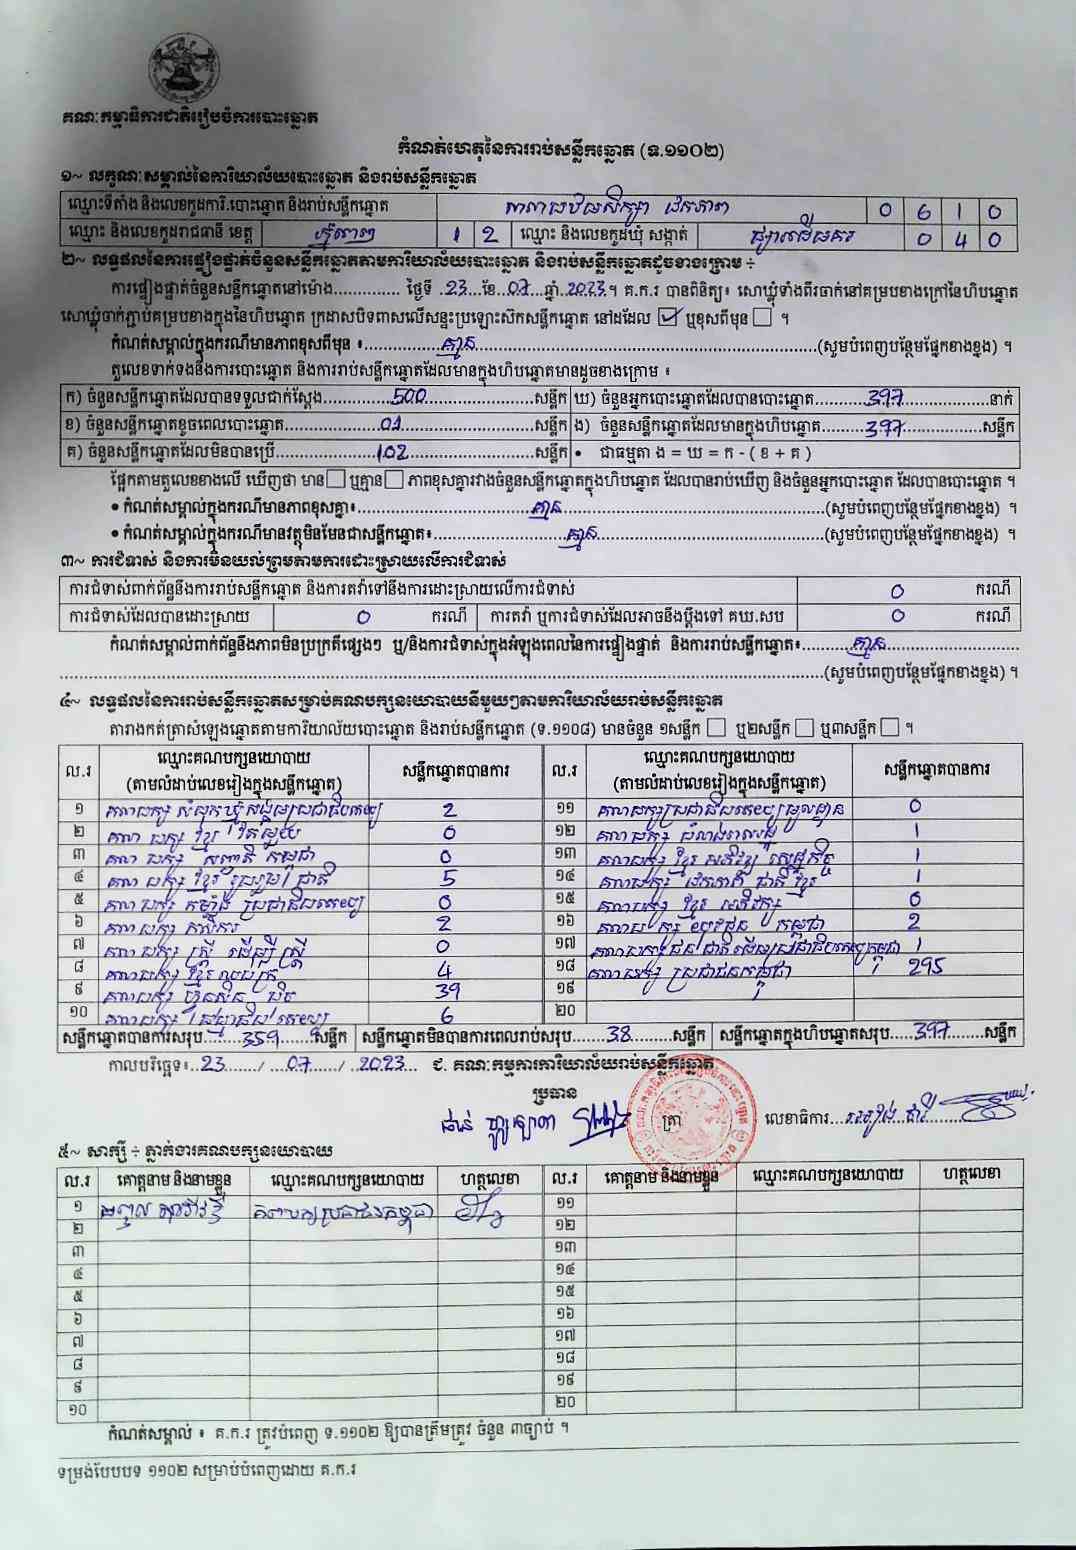 គណៈកម្មាធិការជាតិរៀបចំការបោះឆ្នោត
កំណត់ហេតុនៃការរាប់សន្លឹកឆ្នោត (ទ.១១០២)
១~ លក្ខណៈសម្គាល់នៃការិយាល័យបោះឆ្នោត និងរាប់សន្លឹកឆ្នោត
ឈ្មោះទីតាំង និងលេខកូដការិ.បោះឆ្នោត និងរាប់សន្លឹកឆ្នោត សាលាបឋមសិក្សា ឯកភាព 0 6 1 0
ឈ្មោះ និងលេខកូដរាជធានី ខេត្ត ភ្នំពេញ 1 2 ឈ្មោះ និងលេខកូដឃុំ សង្កាត់ ផ្សារដើមគរ 0 4 0
២~ លទ្ធផលនៃការផ្ទៀងផ្ទាត់ចំនួនសន្លឹកឆ្នោតតាមការិយាល័យបោះឆ្នោត និងរាប់សន្លឹកឆ្នោតដូចខាងក្រោម ÷
ការផ្ទៀងផ្ទាត់ចំនួនសន្លឹកឆ្នោតនៅម៉ោង.............. ថ្ងៃទី .23...ខែ..07...ឆ្នាំ..2023.។ គ.ក.រ បានពិនិត្យ៖ សោឃ្លុំទាំងពីរចាក់នៅគម្របខាងក្រៅនៃហិបឆ្នោត
សោឃ្លុំចាក់ភ្ជាប់គម្របខាងក្នុងនៃហិបឆ្នោត ក្រដាសបិទពាសលើសន្ទះប្រឡោះស៊កសន្លឹកឆ្នោត នៅដដែល ☑ ឬខុសពីមុន ☐ ។
កំណត់សម្គាល់ក្នុងករណីមានភាពខុសពីមុន ៖.............គ្មាន.............(សូមបំពេញបន្ថែមផ្នែកខាងខ្នង) ។
តួលេខទាក់ទងនឹងការបោះឆ្នោត និងការរាប់សន្លឹកឆ្នោតដែលមានក្នុងហិបឆ្នោតមានដូចខាងក្រោម ៖
ក) ចំនួនសន្លឹកឆ្នោតដែលបានទទួលជាក់ស្តែង.........500.........សន្លឹក ឃ) ចំនួនអ្នកបោះឆ្នោតដែលបានបោះឆ្នោត.........397.........នាក់
ខ) ចំនួនសន្លឹកឆ្នោតខូចពេលបោះឆ្នោត.........01.........សន្លឹក ង) ចំនួនសន្លឹកឆ្នោតដែលមានក្នុងហិបឆ្នោត.........397.........សន្លឹក
គ) ចំនួនសន្លឹកឆ្នោតដែលមិនបានប្រើ.........102.........សន្លឹក • ជាធម្មតា ង = ឃ = ក - ( ខ + គ )
ផ្អែកតាមតួលេខខាងលើ ឃើញថា មាន☐ ឬគ្មាន☐ ភាពខុសគ្នារវាងចំនួនសន្លឹកឆ្នោតក្នុងហិបឆ្នោត ដែលបានរាប់ឃើញ និងចំនួនអ្នកបោះឆ្នោត ដែលបានបោះឆ្នោត ។
• កំណត់សម្គាល់ក្នុងករណីមានភាពខុសគ្នា៖.............គ្មាន.............(សូមបំពេញបន្ថែមផ្នែកខាងខ្នង) ។
• កំណត់សម្គាល់ក្នុងករណីមានវត្ថុមិនមែនជាសន្លឹកឆ្នោត៖.............គ្មាន.............(សូមបំពេញបន្ថែមផ្នែកខាងខ្នង) ។
៣~ ការជំទាស់ និងការមិនយល់ព្រមតាមការដោះស្រាយលើការជំទាស់
ការជំទាស់ពាក់ព័ន្ធនឹងការរាប់សន្លឹកឆ្នោត និងការតវ៉ាទៅនឹងការដោះស្រាយលើការជំទាស់ 0 ករណី
ការជំទាស់ដែលបានដោះស្រាយ 0 ករណី ការតវ៉ា ឬការជំទាស់ដែលអាចនឹងប្តឹងទៅ គឃ.សប 0 ករណី
កំណត់សម្គាល់ពាក់ព័ន្ធនឹងភាពមិនប្រក្រតីផ្សេងៗ ឬ/និងការជំទាស់ក្នុងអំឡុងពេលនៃការផ្ទៀងផ្ទាត់ និងការរាប់សន្លឹកឆ្នោត៖.........គ្មាន.........
.............(សូមបំពេញបន្ថែមផ្នែកខាងខ្នង) ។
៤~ លទ្ធផលនៃការរាប់សន្លឹកឆ្នោតសម្រាប់គណបក្សនយោបាយនីមួយៗតាមការិយាល័យរាប់សន្លឹកឆ្នោត
តារាងកត់ត្រាសំឡេងឆ្នោតតាមការិយាល័យបោះឆ្នោត និងរាប់សន្លឹកឆ្នោត (ទ.១១០៨) មានចំនួន ១សន្លឹក ☐ ឬ២សន្លឹក ☐ ឬ៣សន្លឹក ☐ ។
ល.រ ឈ្មោះគណបក្សនយោបាយ (តាមលំដាប់លេខរៀងក្នុងសន្លឹកឆ្នោត) សន្លឹកឆ្នោតបានការ ល.រ ឈ្មោះគណបក្សនយោបាយ (តាមលំដាប់លេខរៀងក្នុងសន្លឹកឆ្នោត) សន្លឹកឆ្នោតបានការ
១ គណបក្ស សំបុកឃ្មុំសង្គមប្រជាធិបតេយ្យ 2 ១១ គណបក្សប្រជាធិបតេយ្យមូលដ្ឋាន 0
២ គណ បក្ស ខ្មែរ រួបរួម 0 ១២ គណ បក្ស ជំលង់ពលរដ្ឋ 1
៣ គណ បក្ស សញ្ជាតិ កម្ពុជា 0 ១៣ គណបក្ស ខ្មែរ អភិវឌ្ឍ សេដ្ឋកិច្ច 1
៤ គណ បក្ស ខ្មែរ រួបរួម ជាតិ 5 ១៤ គណបក្ស ឯកភាព ជាតិ ខ្មែរ 1
៥ គណ បក្ស កម្លាំង ប្រជាធិបតេយ្យ 0 ១៥ គណបក្ស ខ្មែរ អភិរក្ស 0
៦ គណ បក្ស កសិករ 2 ១៦ គណបក្ស យុវជន កម្ពុជា 2
៧ គណ បក្ស ស្ត្រី ដើម្បី ស្ត្រី 0 ១៧ គណបក្សជនជាតិដើមប្រជាធិបតេយ្យកម្ពុជា 1
៨ គណបក្ស ខ្មែរ ឈប់ក្រ 4 ១៨ គណបក្ស ប្រជាជនកម្ពុជា 295
៩ គណបក្ស ហ៊្វុនស៊ិន ប៉ិច 39 ១៩
១០ គណបក្ស ធម្មាធិបតេយ្យ 6 ២០
សន្លឹកឆ្នោតបានការសរុប.....359.....សន្លឹក សន្លឹកឆ្នោតមិនបានការពេលរាប់សរុប.....38.....សន្លឹក សន្លឹកឆ្នោតក្នុងហិបឆ្នោតសរុប.....397.....សន្លឹក
កាលបរិច្ឆេទ៖..23....../...07....../..2023... ជ. គណៈកម្មការការិយាល័យរាប់សន្លឹកឆ្នោត
ប្រធាន
ត្រា លេខាធិការ
៥~ សាក្សី ÷ ភ្នាក់ងារគណបក្សនយោបាយ
ល.រ គោត្តនាម និងនាមខ្លួន ឈ្មោះគណបក្សនយោបាយ ហត្ថលេខា ល.រ គោត្តនាម និងនាមខ្លួន ឈ្មោះគណបក្សនយោបាយ ហត្ថលេខា
១ គណបក្សប្រជាជនកម្ពុជា ១១
២ ១២
៣ ១៣
៤ ១៤
៥ ១៥
៦ ១៦
៧ ១៧
៨ ១៨
៩ ១៩
១០ ២០
កំណត់សម្គាល់ ៖ គ.ក.រ ត្រូវបំពេញ ទ.១១០២ ឱ្យបានត្រឹមត្រូវ ចំនួន ៣ច្បាប់ ។
ទម្រង់បែបបទ ១១០២ សម្រាប់បំពេញដោយ គ.ក.រ